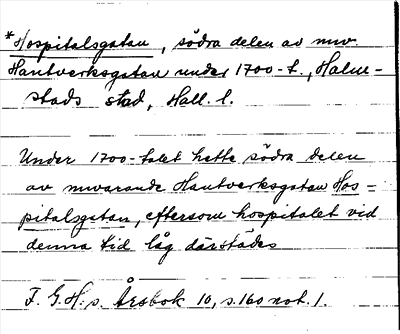 *Hospitalsgatan, södra delen av nuv.
Hantverksgatan under 1700-t., Halm-
stads stad, Hall. l.
Under 1700-talet hette södra delen
av nuvarande Hantverksgatan Hos-
pitalsgatan, eftersom hospitalet vid
denna tid låg därstädes
F. G. H:s. Årsbok 10, s. 160 not. 1.